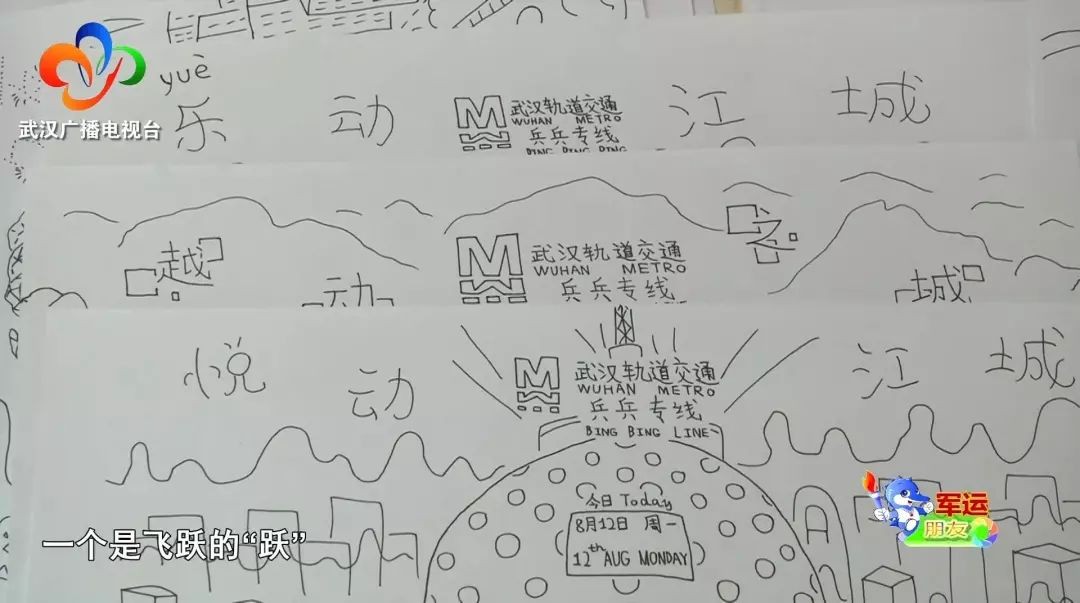 武汉广播电视台
yuè
乐 动 江 城
武汉轨道交通
WUHAN METRO
兵兵专线
BING BING BING
越 动 城
武汉轨道交通
WUHAN METRO
兵兵专线
悦 动 江 城
武汉轨道交通
WUHAN METRO
兵兵专线
BING BING LINE
今日 Today
8月12日 周一
12th AUG MONDAY
军运
朋友
一个是飞跃的“跃”